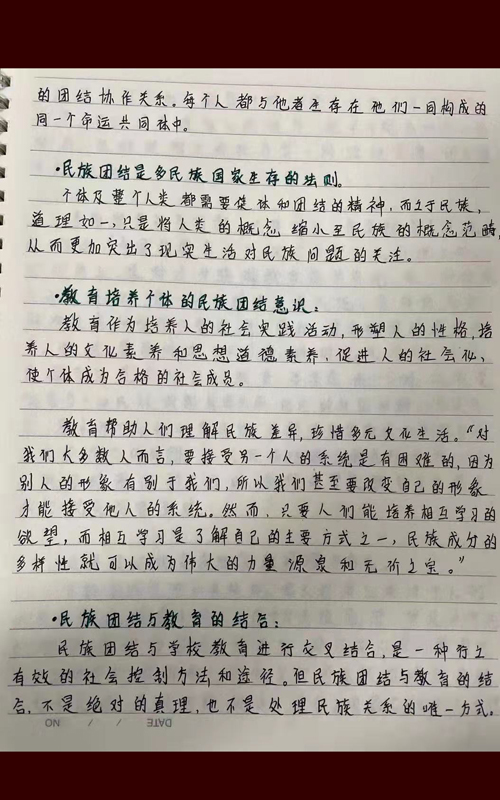 的团结协作关系。每个人都与他者生存在他们一同构成的
同一个命运共同体中。
·民族团结是多民族国家生存的法则。
个体及整个人类都需要集体和团结的精神,而立于民族,
道理如一,只是将人类的概念缩小至民族的概念范畴,
从而更加突出了现实生活对民族问题的关注。
·教育培养个体的民族团结意识:
教育作为培养人的社会实践活动,形塑人的性格,培
养人的文化素养和思想道德素养,促进人的社会化,
使个体成为合格的社会成员。
教育帮助人们理解民族差异,珍惜多元文化生活。“对
我们大多数人而言,要接受另一个人的系统是有困难的,因为
别人的形象有别于我们,所以我们甚至要改变自己的形象
才能接受他人的系统。然而,只要人们能培养相互学习的
欲望,而相互学习是了解自己的主要方式之一,民族成分的
多样性就可以成为伟大的力量源泉和无价之宝。”
·民族团结与教育的结合:
民族团结与学校教育进行交叉结合,是一种行之
有效的社会控制方法和途径。但民族团结与教育的结
合,不是绝对的真理,也不是处理民族关系的唯一方式。
DATE / / NO